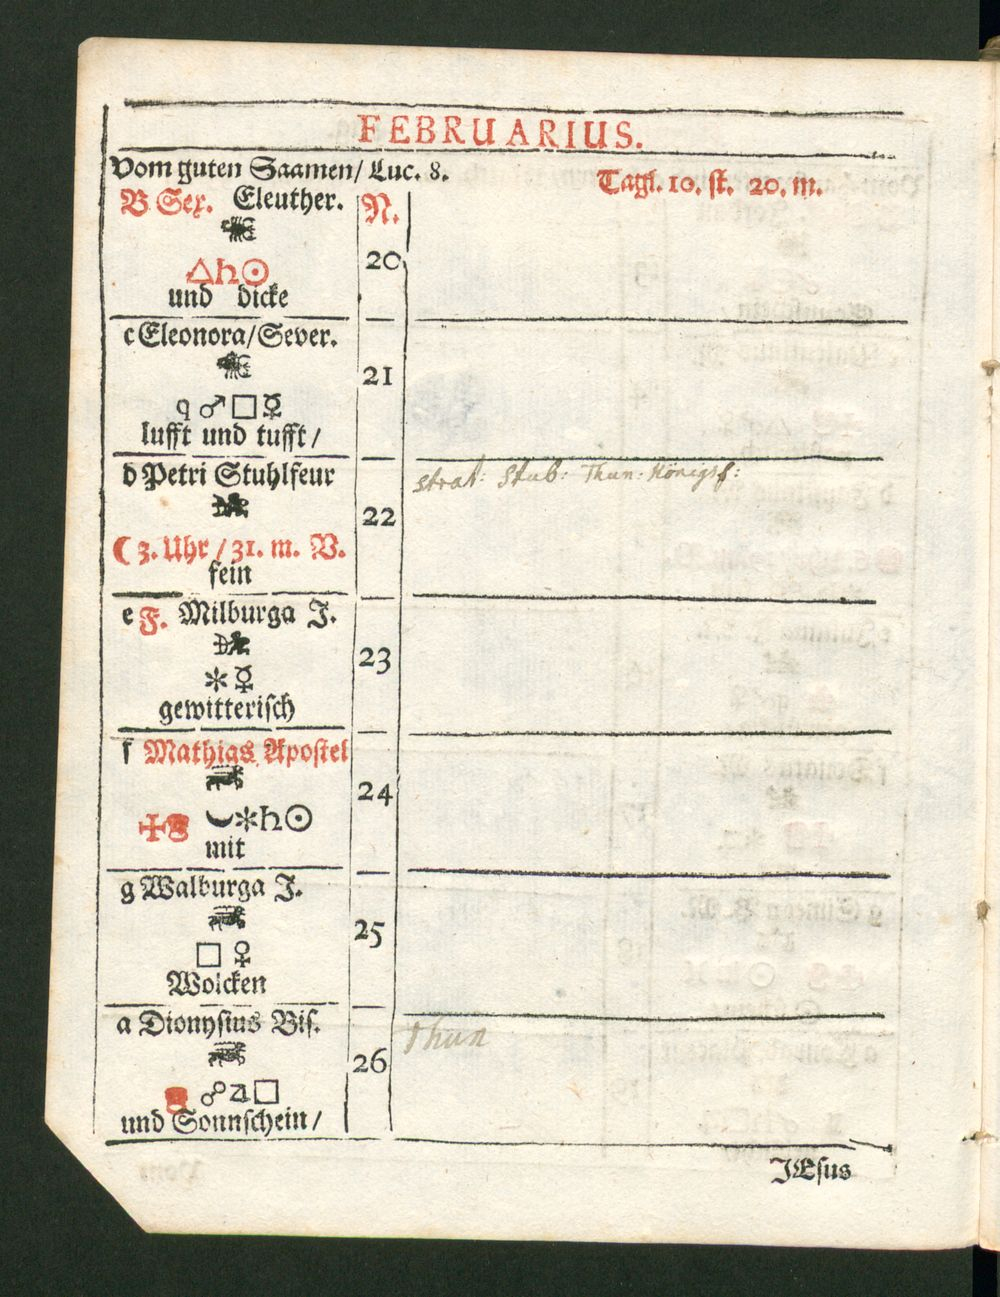 FEBRUARIUS.
Vom guten Saamen/ Luc. 8.
Tagl. 10. st. 20. m.
B Sex. Eleuther.
N.
20
△♄☉
und dicke
c Eleonora/Sever.
21
q ♂□☿
lufft und tufft/
d Petri Stuhlfeur
strat: Stub: Thun: Königsf:
22
☾ 3. Uhr / 31. m. V.
fein
e F. Milburga J.
23
✻ ☿
gewitterisch
f Mathias Apostel
24
☽✻♄☉
mit
g Walburga J.
25
□ ♀
Wolcken
a Dionysius Bis.
Thun
26
☍♃□
und Sonnschein/
JEsus